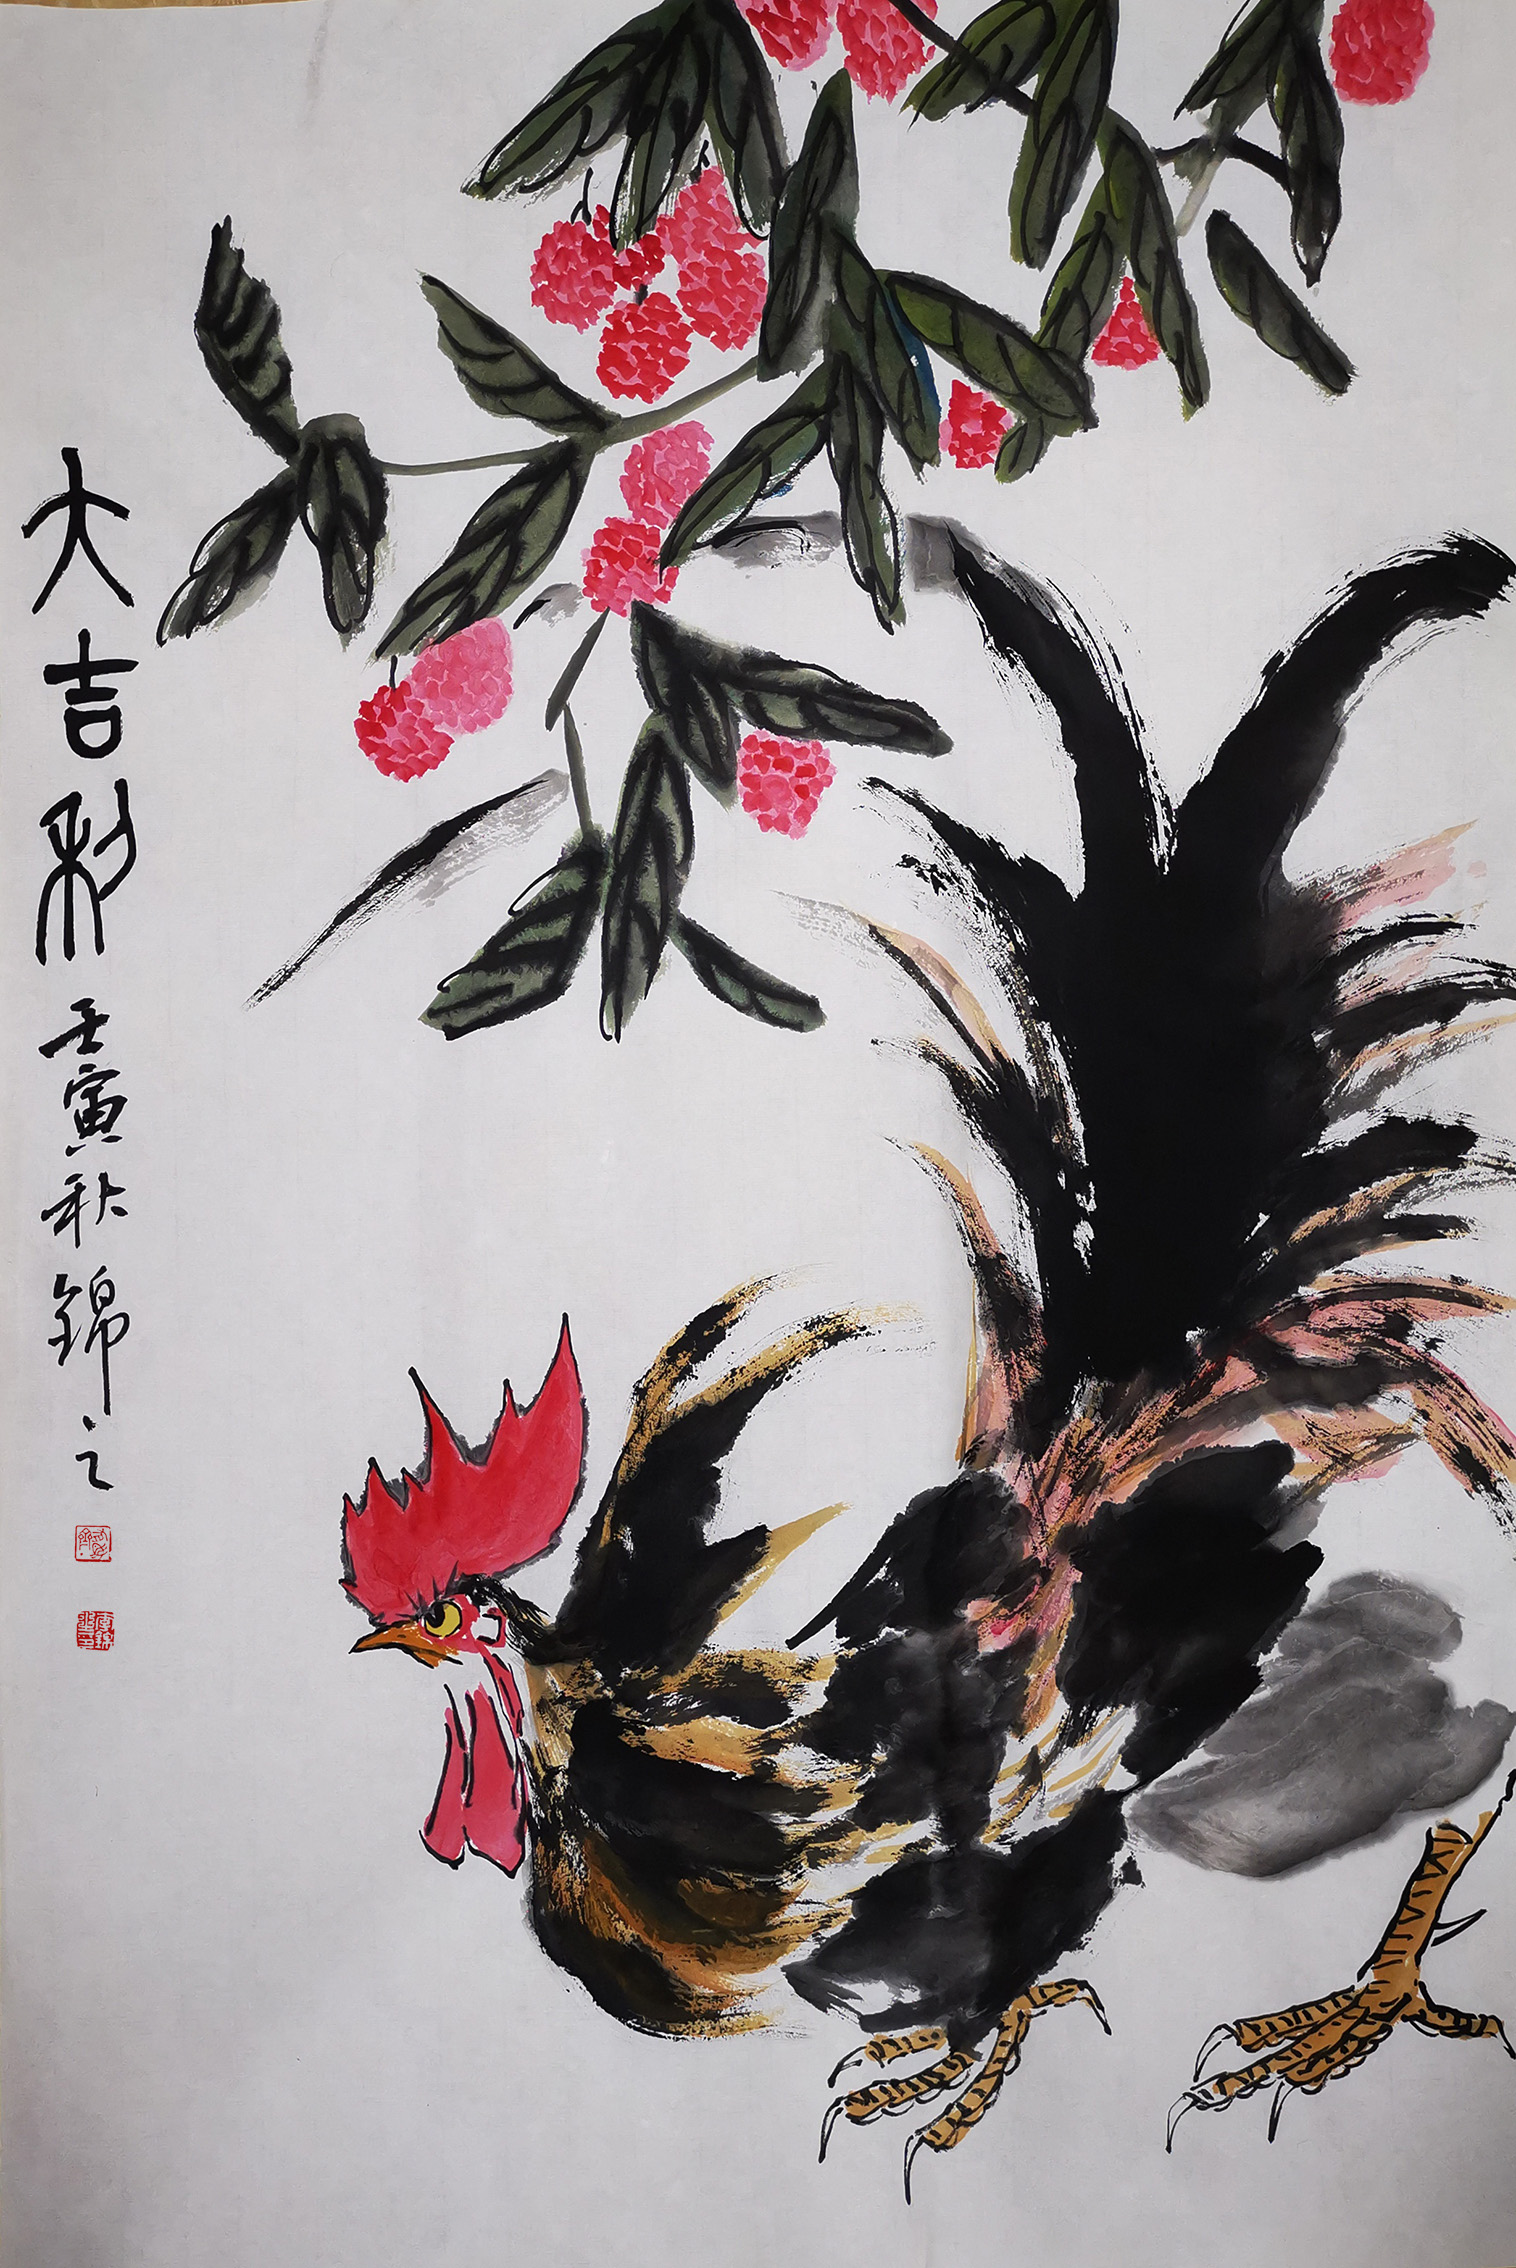 大吉利
壬寅秋錦之